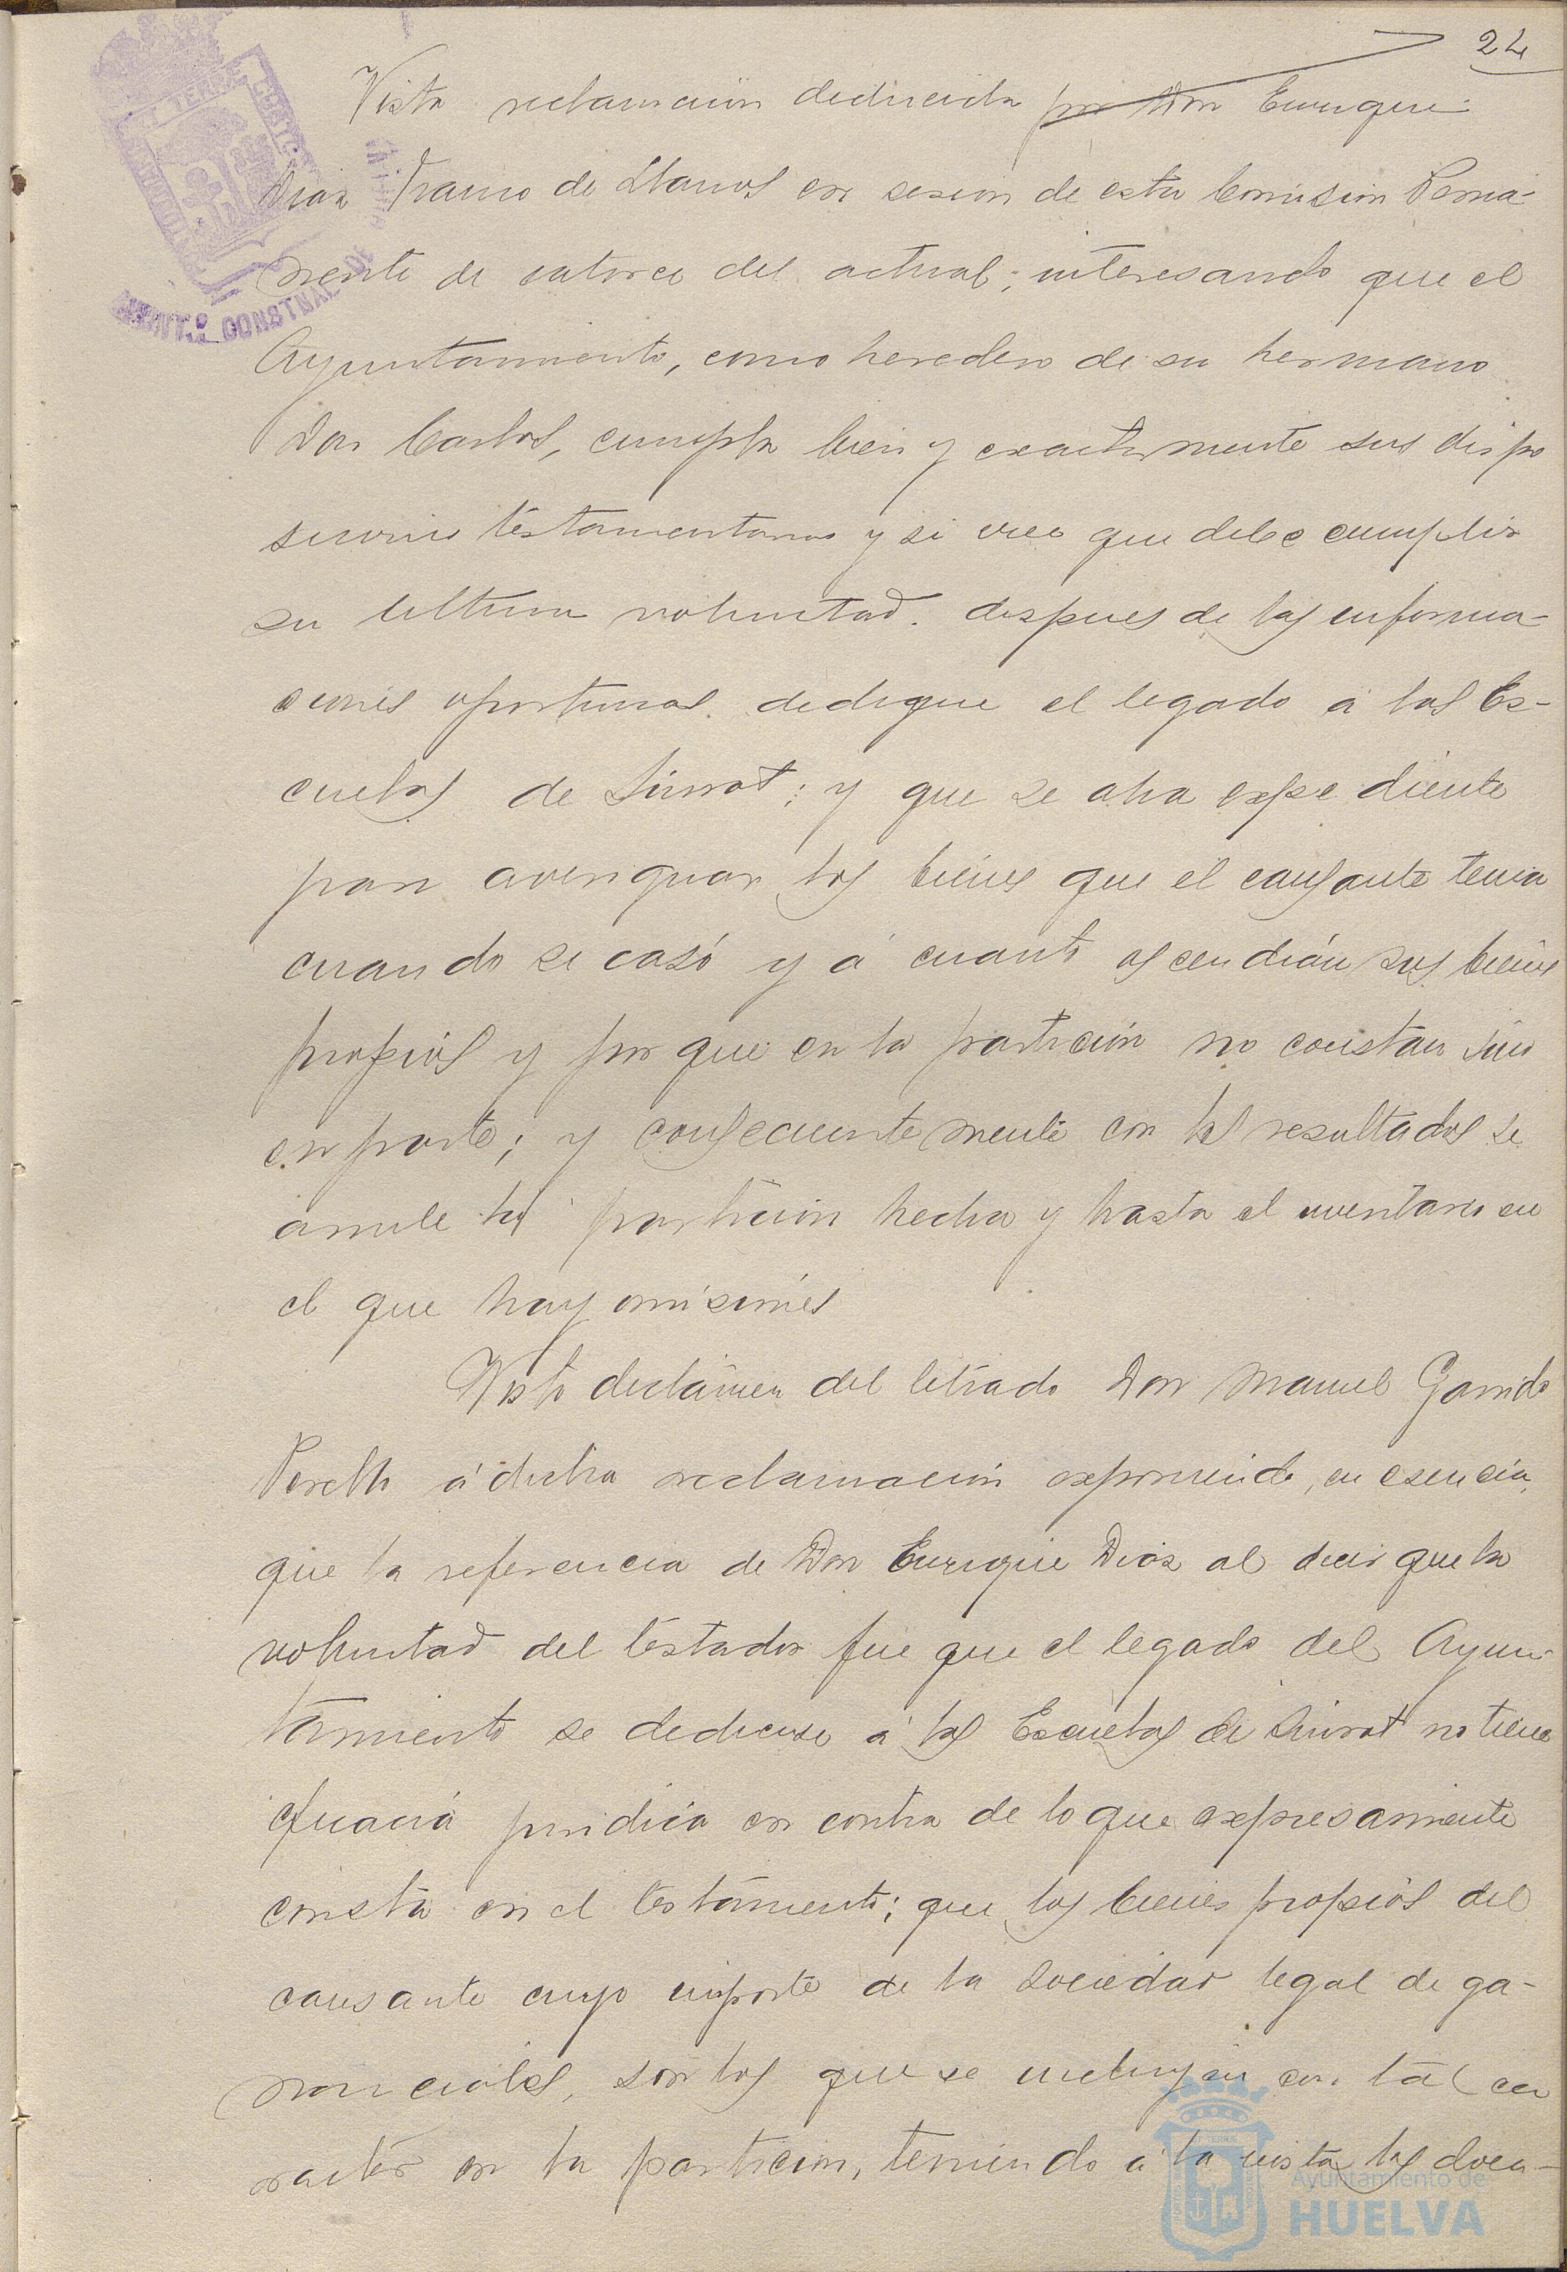 24
Vista reclamación deducida por Don Enrique
Diaz Franco de Llanos en sesion de esta Comision Perma-
nente de catorce del actual; interesando que el
Ayuntamiento, como heredero de su hermano
Don Carlos, cumpla bien y exactamente sus dispo
siciones testamentarias y si cree que debe cumplir
su ultima voluntad. despues de las informa-
ciones oportunas. dedique el legado á las Es-
cuelas de Siurot; y que se abra expediente
para averiguar los bienes que el causante tenia
cuando se casó y á cuanto ascendian sus bienes
propios y por que en la partición no constan sino
en parte; y consecuentemente con los resultados se
anule la partición hecha y hasta el inventario en
el que hay omisiones
Visto dictámen del letrado Don Manuel Garrido
Perelló á dicha reclamación exponiendo, en esencia,
que la referencia de Don Enrique Diaz al decir que la
voluntad del testador fue que el legado del Ayun-
tamiento se dedicase á las Escuelas de Siurot no tiene
eficacia juridica en contra de lo que expresamente
consta en el testamento; que los bienes propios del
causante cuyo importe de la Sociedad legal de ga-
nanciales, son los que se incluyen con tal ca
racter en la particion, teniendo á la vista los docu-
MIENT.º CONSTNAL
Ayuntamiento de
HUELVA